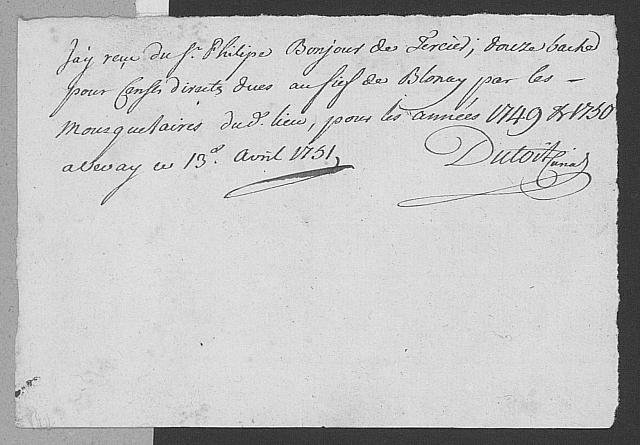 J'ay reçu du Sr. Philipe Bonjour de Tercier, douze bache
pour Censes directs dues au fief de Blonay par les –
Mousquetaires du d. lieu, pour les années 1749 & 1750
a Vevay ce 13e. Avril 1751,
Dutoit